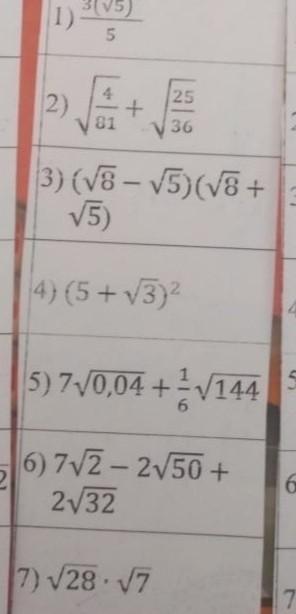 1) 3(√5)/5
2) √(4/81) + √(25/36)
3) (√8 − √5)(√8 +
√5)
4) (5 + √3)²
5) 7√0,04 + 1/6 √144
6) 7√2 − 2√50 +
2√32
7) √28 · √7